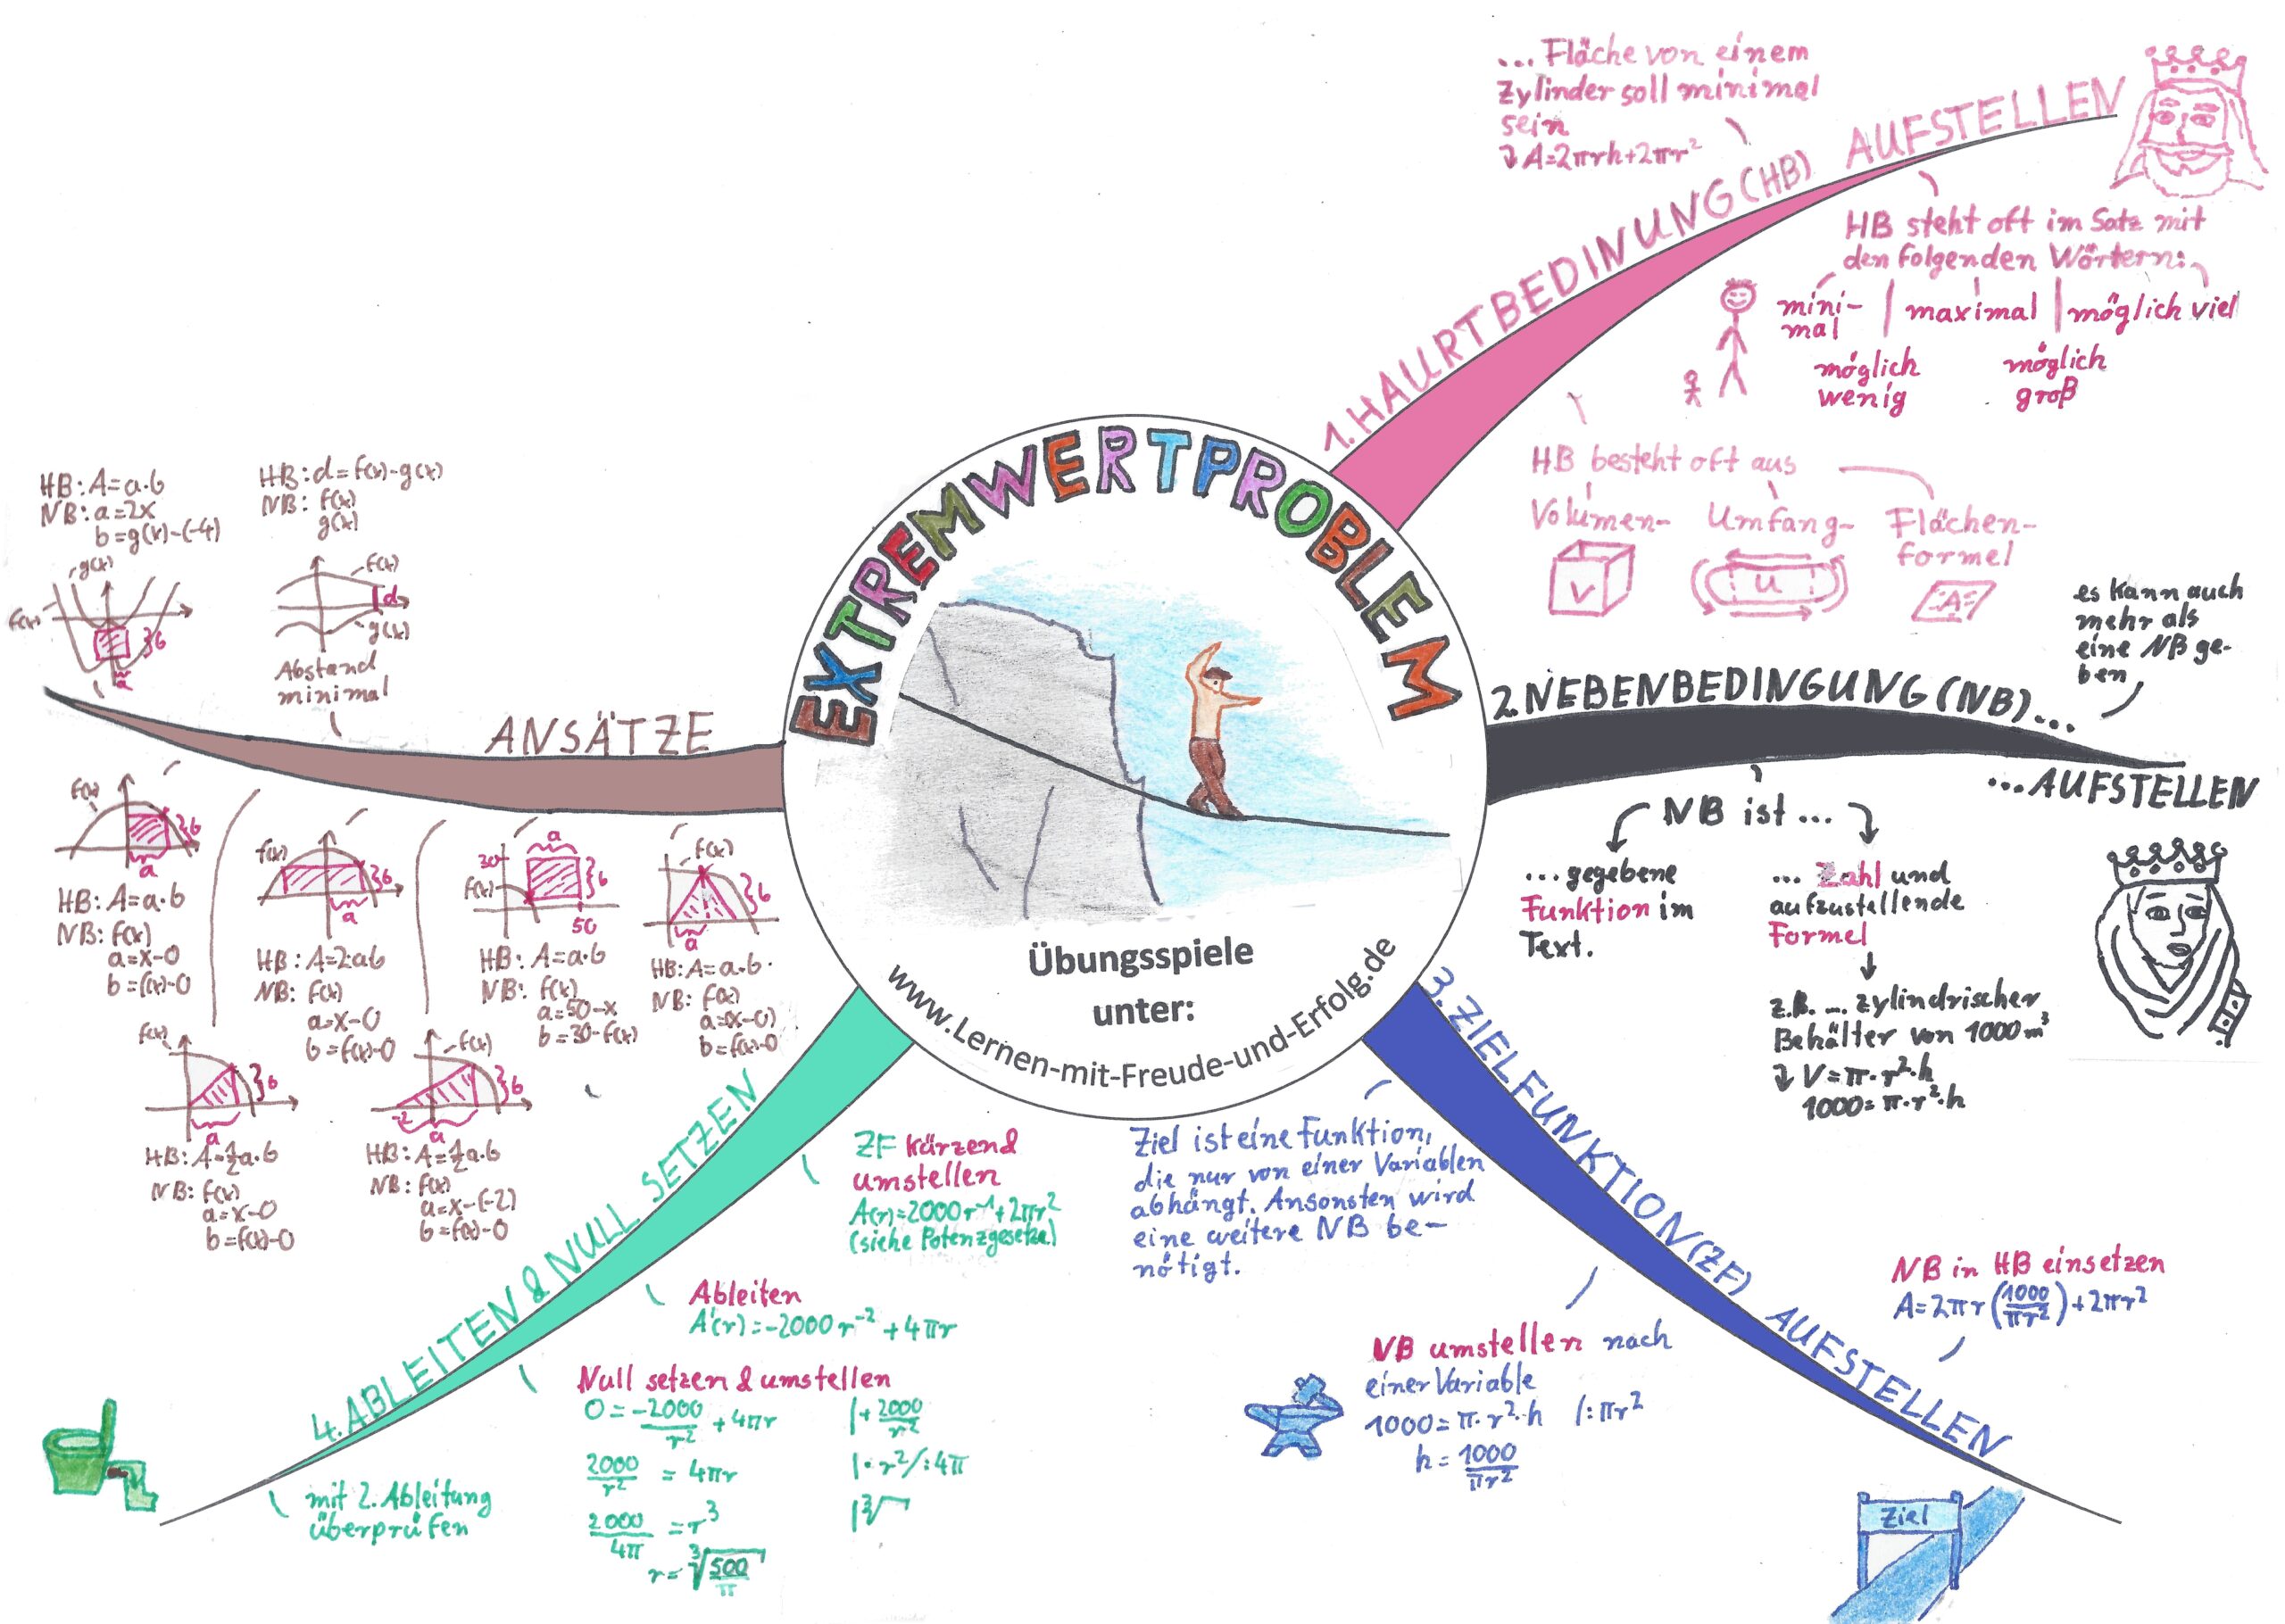 EXTREMWERTPROBLEM
Übungsspiele
unter:
www.Lernen-mit-Freude-und-Erfolg.de
1. HAURTBEDINUNG (HB) AUFSTELLEN
... Fläche von einem
Zylinder soll minimal
sein
↴ A=2πrh+2πr²
HB steht oft im Satz mit
den folgenden Wörtern:
mini- | maximal | möglich viel
mal
möglich möglich
wenig groß
HB besteht oft aus
Volumen- Umfang- Flächen-
formel
V U A
2. NEBENBEDINGUNG (NB)...
...AUFSTELLEN
es kann auch
mehr als
eine NB ge-
ben
NB ist ...
... gegebene
Funktion im
Text.
... Zahl und
aufzustellende
Formel
z.B. ... zylindrischer
Behälter von 1000 m³
↴ V=π·r²·h
1000=π·r²·h
3. ZIELFUNKTION (ZF) AUFSTELLEN
Ziel ist eine Funktion,
die nur von einer Variablen
abhängt. Ansonsten wird
eine weitere NB be-
nötigt.
NB umstellen nach
einer Variable
1000=π·r²·h |:πr²
h=1000/πr²
NB in HB einsetzen
A=2πr(1000/πr²)+2πr²
Ziel
4. ABLEITEN & NULL SETZEN
ZF kürzend
umstellen
A(r)=2000r⁻¹+2πr²
(siehe Potenzgesetze)
Ableiten
A'(r)=-2000r⁻²+4πr
Null setzen & umstellen
0=-2000/r²+4πr |+2000/r²
2000/r²=4πr |·r²/:4π
2000/4π=r³ |∛
r=∛500/π
mit 2. Ableitung
überprüfen
ANSÄTZE
HB: A=a·b
NB: a=2x
b=g(x)-(-4)
g(x)
f(x)
b
a
HB: d=f(x)-g(x)
NB: f(x)
g(x)
f(x)
d
g(x)
Abstand
minimal
f(x)
b
a
HB: A=a·b
NB: f(x)
a=x-0
b=f(x)-0
f(x)
b
a
HB: A=2ab
NB: f(x)
a=x-0
b=f(x)-0
a
30
f(x)
b
50
HB: A=a·b
NB: f(x)
a=50-x
b=30-f(x)
f(x)
b
a
HB: A=a·b
NB: f(x)
a=(x-0)
b=f(x)-0
f(x)
b
a
HB: A=½a·b
NB: f(x)
a=x-0
b=f(x)-0
f(x)
b
-2
a
HB: A=½a·b
NB: f(x)
a=x-(-2)
b=f(x)-0